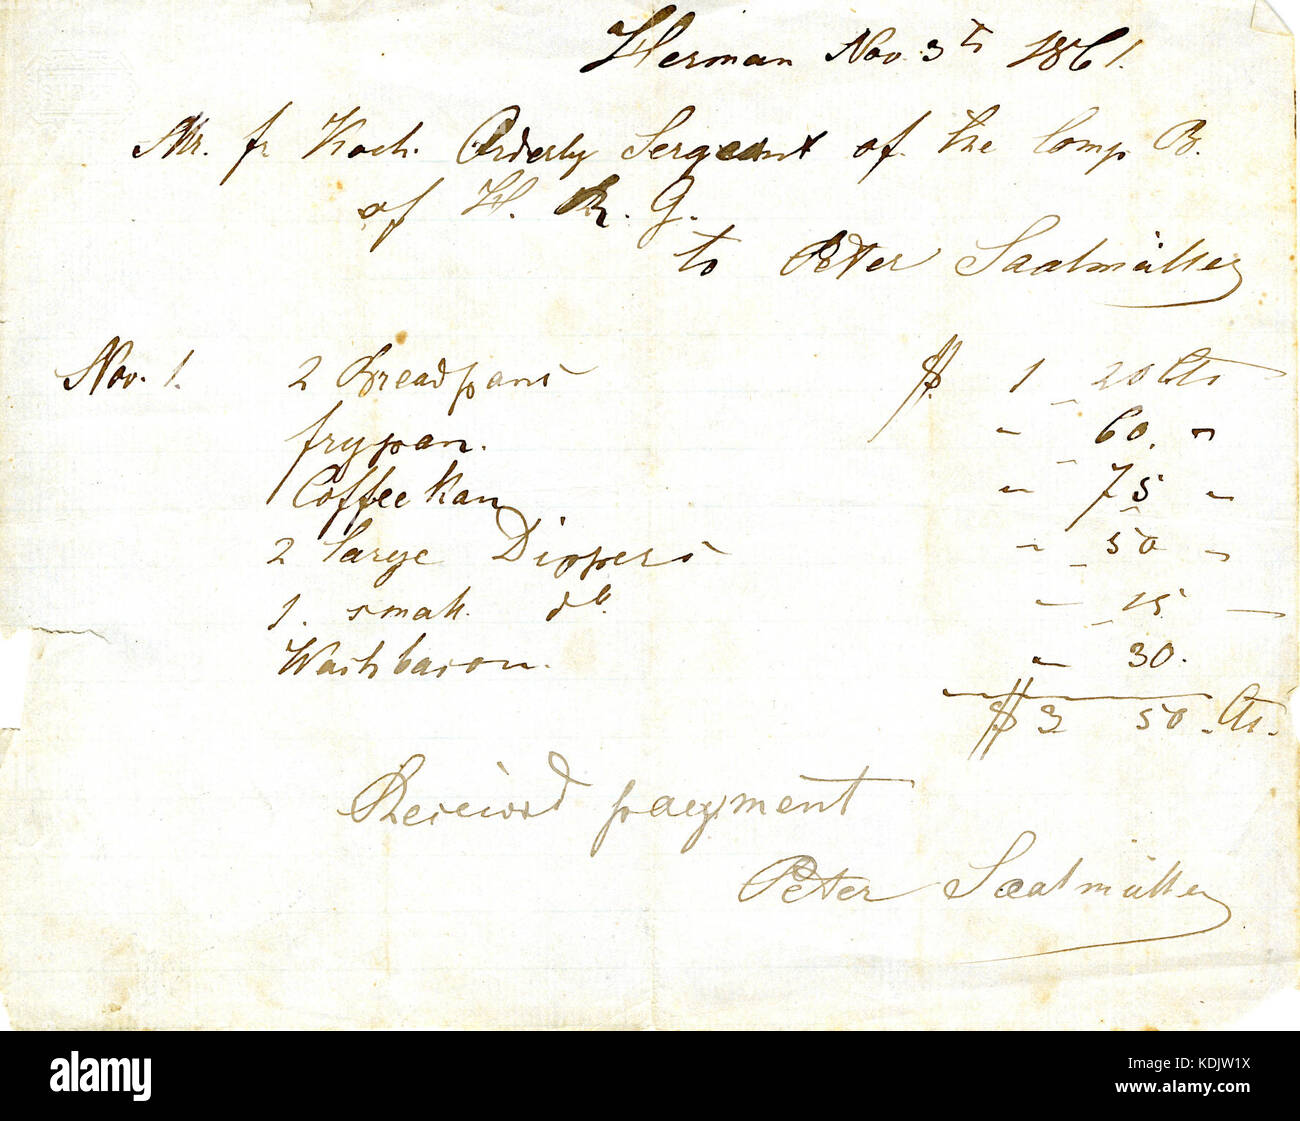 Herman Nov. 3th 1861.
Mr. fr Koch. Orderly Sergeant of the Comp B.
of H. R. G.
to Peter Saalmüller
Nov. 1. 2 Breadpans $ 1 20 Cts
frypan. " 60. "
Coffee Kan " 75 "
2 large Dippers " 50 "
1. small do. " 15 "
Washbason. " 30.
$ 3 50 Cts.
Received payment
Peter Saalmüller
alamy
Image ID: KDJW1X
www.alamy.com